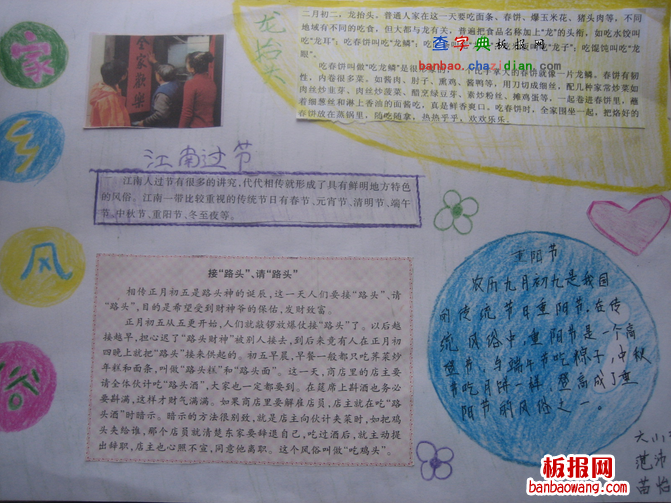 家
乡
风
俗
全家歡樂
龙抬头
二月初二，龙抬头，普通人家在这一天要吃面条、春饼、爆玉米花、猪头肉等，不同
地域有不同的吃食，但大都与龙有关，普遍把食品名称加上“龙”的头衔。如吃水饺叫
吃“龙耳”；吃春饼叫吃“龙鳞”；吃
龙子”；吃馄饨叫吃“龙
眼”。
查字典板报网
banbao.chazidian.com
吃春饼叫做“吃龙鳞”是很形象的，一个比手掌大的春饼就像一片龙鳞。春饼有韧
性，内卷很多菜。如酱肉、肘子、熏鸡、酱鸭等，用刀切成细丝，配几种家常炒菜如
肉丝炒韭芽、肉丝炒菠菜、醋烹绿豆芽、素炒粉丝、摊鸡蛋等，一起卷进春饼里，蘸
着细葱丝和淋上香油的面酱吃，真是鲜香爽口。吃春饼时，全家围坐一起，把烙好的
春饼放在蒸锅里，随吃随拿，热热乎乎，欢欢乐乐。
江南过节
江南人过节有很多的讲究，代代相传就形成了具有鲜明地方特色
的风俗。江南一带比较重视的传统节日有春节、元宵节、清明节、端午
节、中秋节、重阳节、冬至夜等。
接“路头”、请“路头”
相传正月初五是路头神的诞辰，这一天人们要接“路头”、请
“路头”，目的是希望受到财神爷的保佑，发财致富。
正月初五从五更开始，人们就敲锣放爆仗接“路头”了。以后越
接越早，担心迟了“路头财神”被别人接去，到后来竟有人在正月初
四晚上就把“路头”接来供起的。初五早晨，早餐一般都只吃荠菜炒
年糕和面条，叫做“路头糕”和“路头面”。这一天，商店里的店主要
请全体伙计吃“路头酒”，大家也一定都要到。在筵席上斟酒也务必
要斟满，这样才财气满满。如果商店里要解雇店员，店主就在吃“路
头酒”时暗示。暗示的方法很别致，就是店主向伙计夹菜时，如把鸡
头夹给谁，那个店员就清楚东家要辞退自己，吃过酒后，就主动提
出辞职，店主也心照不宣，同意他离职。这个风俗叫做“吃鸡头”。
重阳节
农历九月初九是我国
的传统节日重阳节。在传
统风俗中，重阳节是一个商
登节，与端午节吃粽子，中秋
节吃月饼一样，登高成了重
阳节的风俗之一。
板报网
banbaowang.com